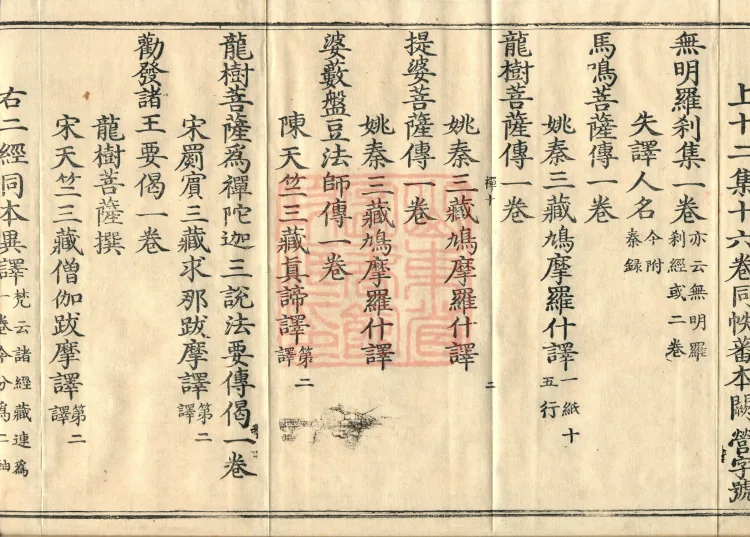 上十二集十六卷同帙蕃本闕營字號
無明羅刹集一卷亦云無明羅刹經或二卷
失譯人名今附秦錄
馬鳴菩薩傳一卷
姚秦三藏鳩摩羅什譯一紙十五行
龍樹菩薩傳一卷
禪十
二
姚秦三藏鳩摩羅什譯
提婆菩薩傳一卷
姚秦三藏鳩摩羅什譯
婆藪盤豆法師傳一卷
陳天竺三藏眞諦譯第二譯
龍樹菩薩爲禪陀迦王說法要傳偈一卷
宋罽賓三藏求那跋摩譯第二譯
勸發諸王要偈一卷
龍樹菩薩撰
宋天竺三藏僧伽跋摩譯第二譯
右二經同本異譯梵云諸經藏連爲一卷今分爲二軸